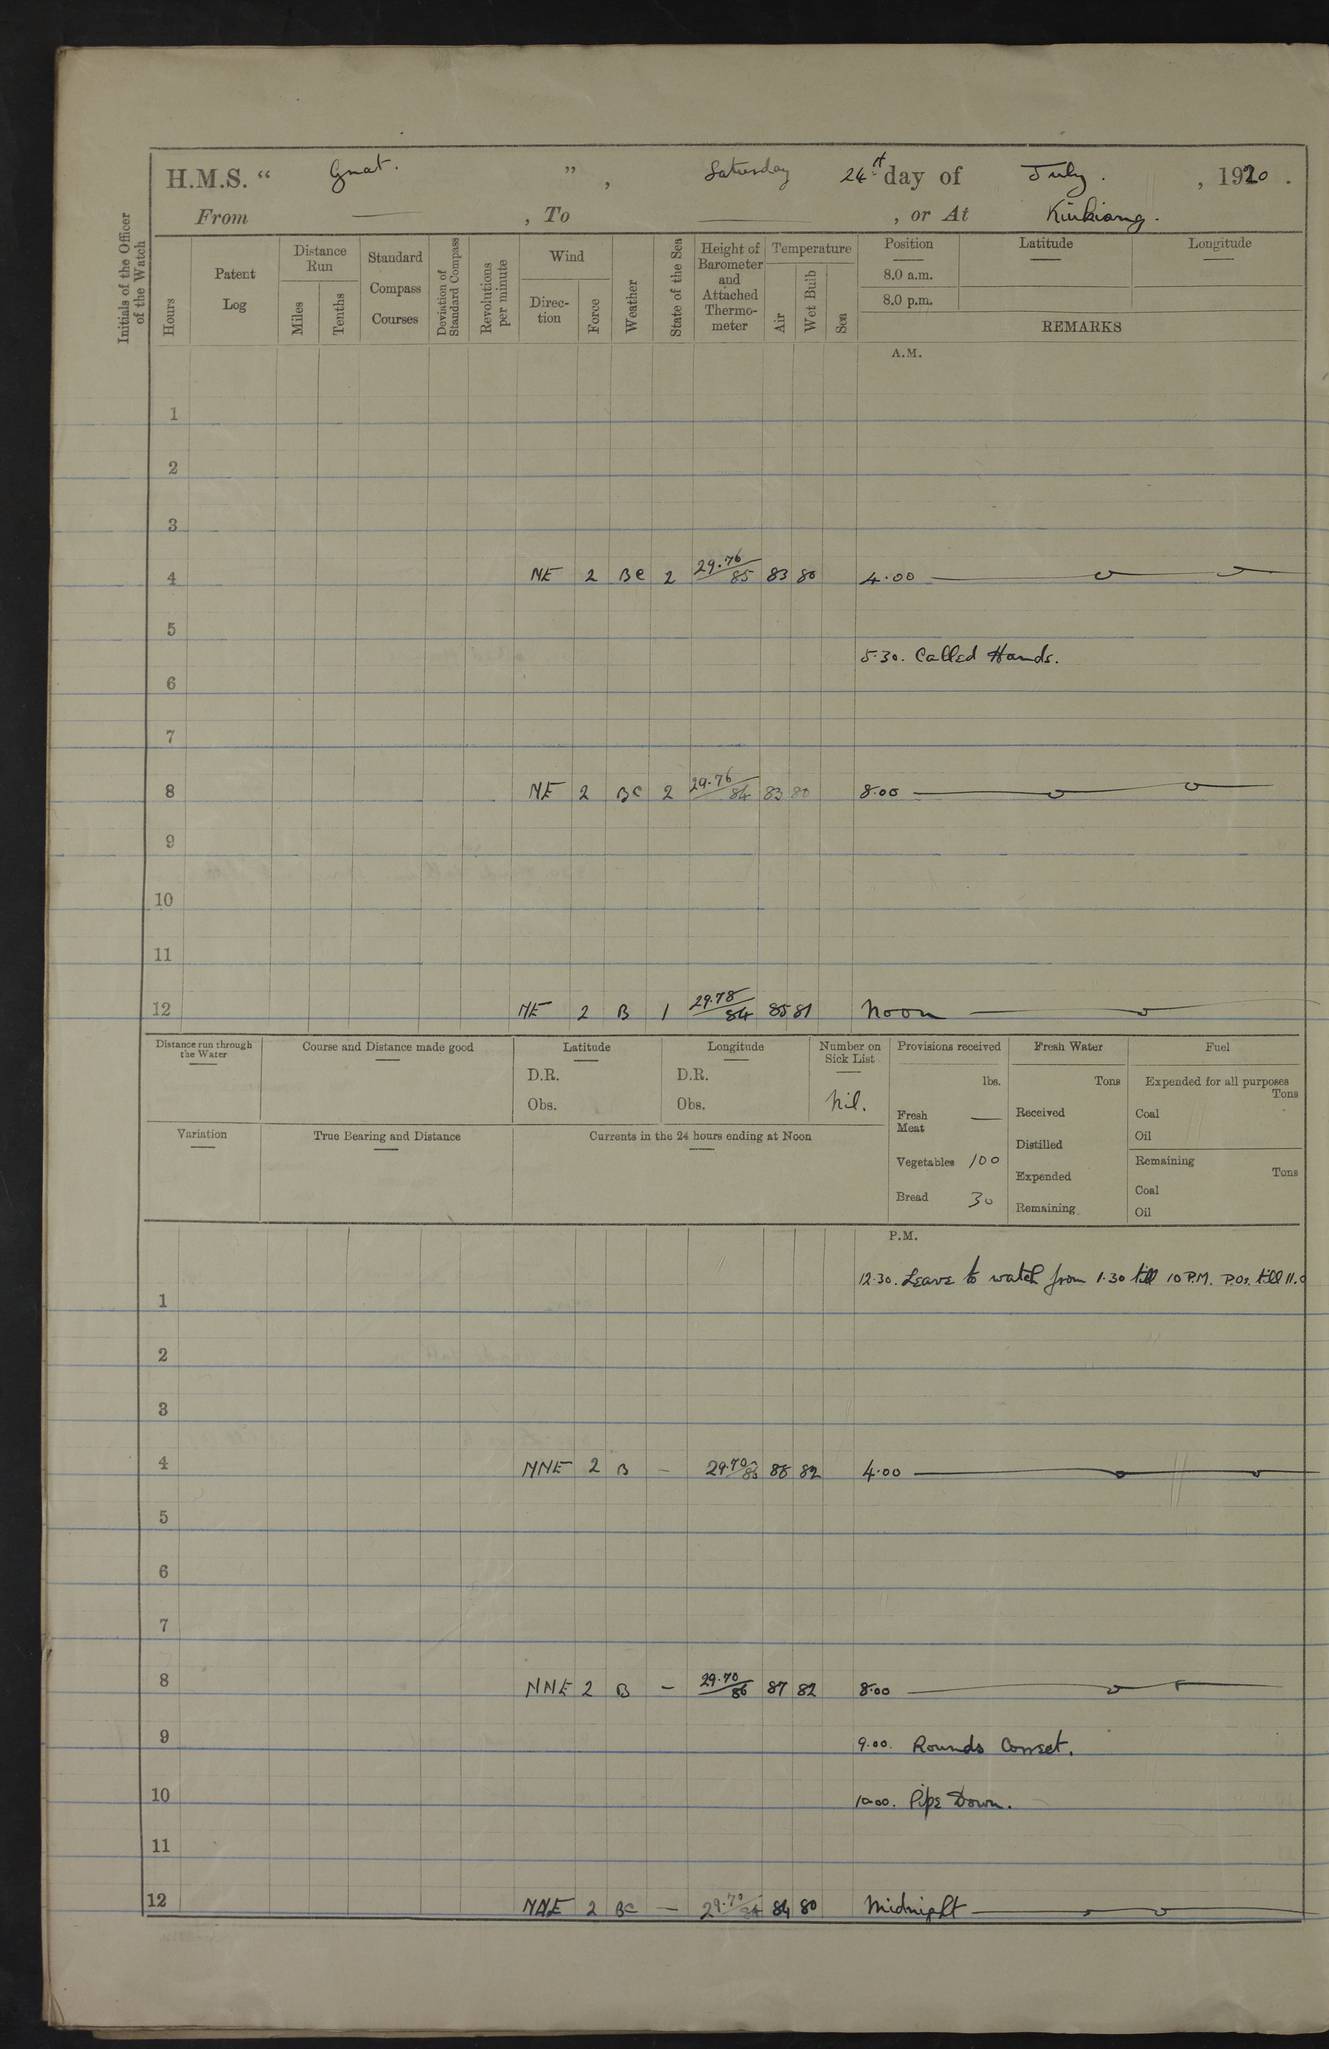 H.M.S. “ Gnat. ” , Saturday 24 day of July . , 1920 .
From — , To — , or At Kiukiang.
Initials of the Officer of the Watch
Hours
Patent Log
Distance Run
Miles
Tenths
Standard Compass Courses
Deviation of Standard Compass
Revolutions per minute
Wind
Direc-tion
Force
Weather
State of the Sea
Height of Barometer and Attached Thermo-meter
Temperature
Air
Wet Bulb
Sea
Position
Latitude
Longitude
8.0 a.m.
8.0 p.m.
REMARKS
A.M.
1
2
3
4 NE 2 BC 2 29.76/85 83 80 4.00
5
5.30. Called Hands.
6
7
8 NE 2 BC 2 29.76/84 83 80 8.00
9
10
11
12 NE 2 B 1 29.78/84 85 81 Noon
Distance run through the Water
Course and Distance made good
Latitude
D.R.
Obs.
Longitude
D.R.
Obs.
Number on Sick List
Nil.
Provisions received
lbs.
Fresh Meat —
Vegetables 100
Bread 30
Fresh Water
Tons
Received
Distilled
Expended
Remaining
Fuel
Expended for all purposes
Tons
Coal
Oil
Remaining
Tons
Coal
Oil
Variation
True Bearing and Distance
Currents in the 24 hours ending at Noon
P.M.
12.30. Leave to watch from 1.30 till 10 P.M. P.Os. till 11.0
1
2
3
4 NNE 2 B - 29.70/85 88 82 4.00
5
6
7
8 NNE 2 B - 29.70/86 87 82 8.00
9 9.00. Rounds Correct.
10 10.00. Pipe Down.
11
12 NNE 2 BC - 29.70/84 84 80 Midnight